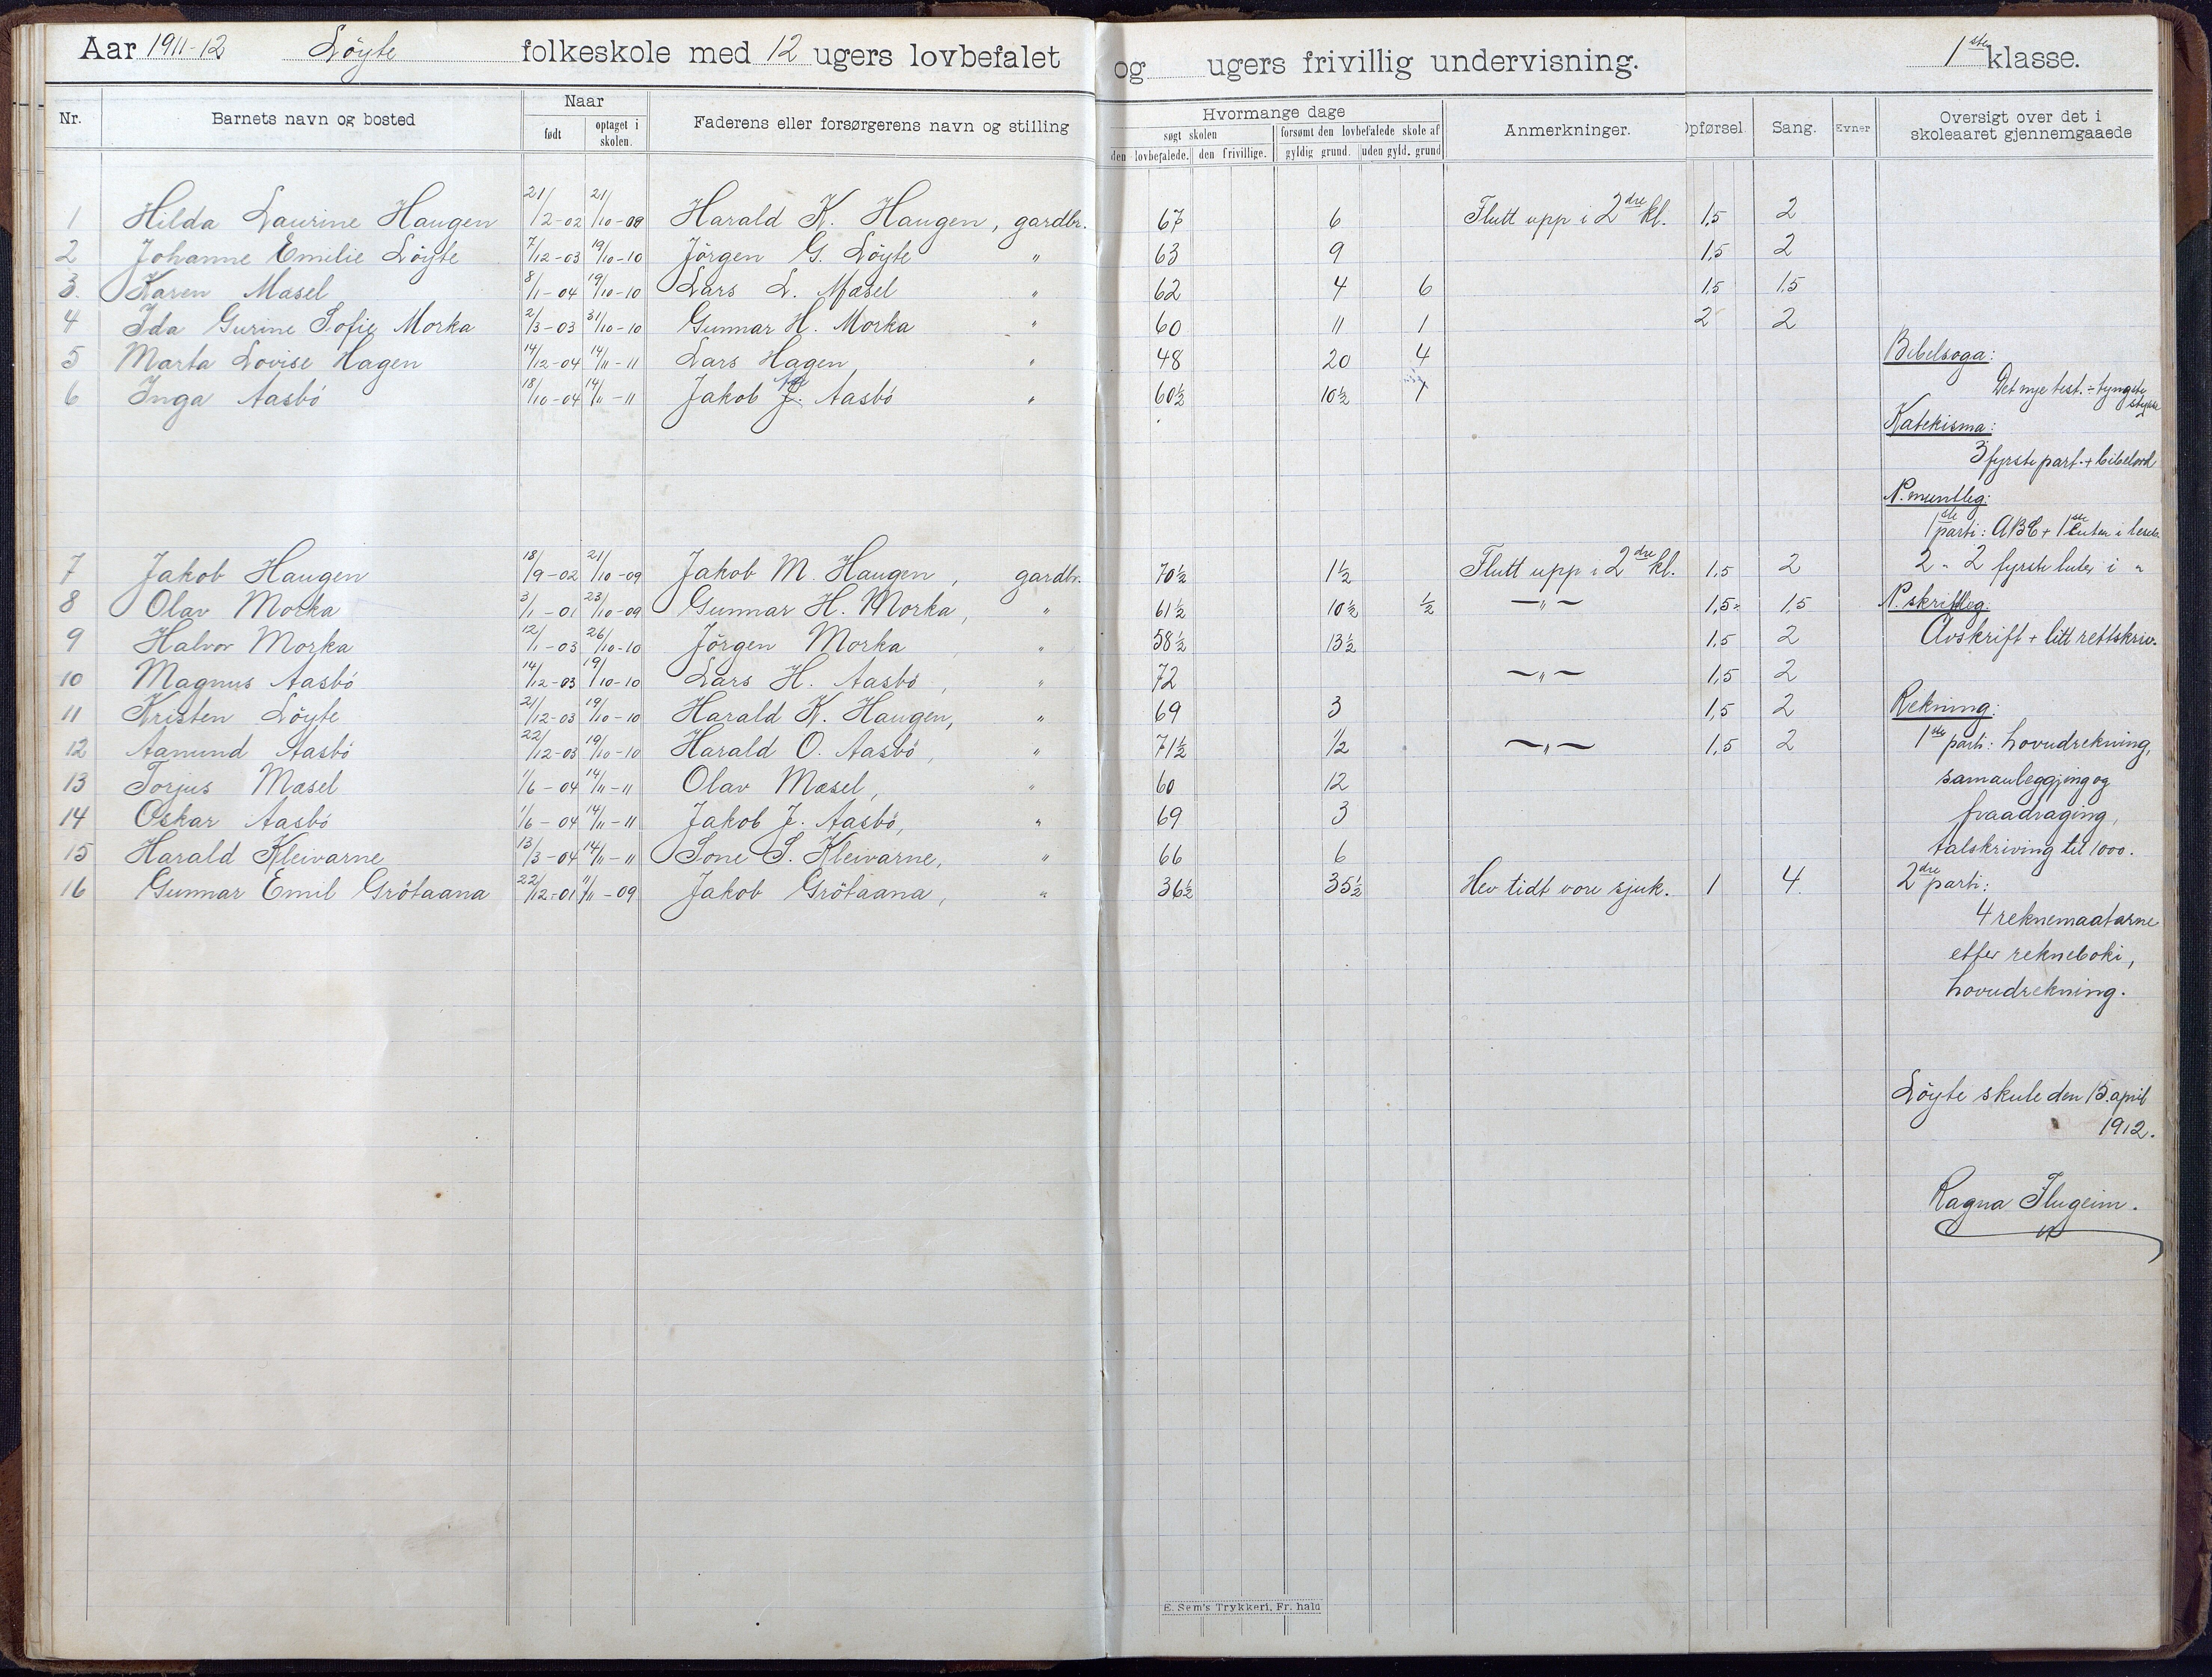 Aar 1911-12 Löyte folkeskole med 12 ugers lovbefalet og ugers frivillig undervisning. 1ste klasse.
Nr. Barnets navn og bosted Naar født optaget i skolen. Faderens eller forsørgerens navn og stilling Hvormange dage søgt skolen den lovbefalede. den frivillige. forsømt den lovbefalede skole af gyldig grund. uden gyld. grund Anmerkninger. Opførsel. Sang. Evner Oversigt over det i skoleaaret gjennemgaaede
1 Hilda Laurine Haugen 21/2-02 21/10-09 Harald K. Haugen, gardbr. 67 6 Flutt upp i 2dre kl. 1,5 2
2 Johanne Emilie Löyte 7/12-03 19/10-10 Jörgen G. Löyte " 63 9 1,5 2
3. Karen Mæsel 8/1-04 19/10-10 Lars L. Mæsel " 62 4 6 1,5 1,5
4 Ida Gurine Sofie Morka 2/3-03 31/10-10 Gunnar H. Morka " 60 11 1 2 2
5 Marta Lovise Hagen 14/12-04 14/11-11 Lars Hagen " 48 20 4
6 Inga Aasbö 18/10-04 14/11-11 Jakob J. Aasbö " 60½ 10½ 1
7 Jakob Haugen 18/9-02 21/10-09 Jakob M. Haugen, gardbr. 70½ 1½ Flutt upp i 2dre kl. 1,5 2
8 Olav Morka 3/1-01 23/10-09 Gunnar H. Morka, " 61½ 10½ ½ —"— 1,5 1,5
9 Halvor Morka 12/1-03 26/10-10 Jörgen Morka " 58½ 13½ 1,5 2
10 Magnus Aasbö 14/12-03 19/10-10 Lars H. Aasbö, " 72 —"— 1,5 2
11 Kristen Löyte 21/12-03 19/10-10 Harald K. Haugen, " 69 3 1,5 2
12 Aanund Aasbö 22/12-03 19/10-10 Harald O. Aasbö, " 71½ 1/2 —"— 1,5 2
13 Torjus Mæsel 1/6-04 14/11-11 Olav Mæsel, " 60 12
14 Oskar Aasbö 1/6-04 14/11-11 Jakob J. Aasbö, " 69 3
15 Harald Kleivarne 13/3-04 14/11-11 Sone S. Kleivarne, " 66 6
16 Gunnar Emil Grötaana 22/12-01 11/11-09 Jakob Grötaana, " 36½ 35½ Hev tidt vore sjuk. 1 4.
Bibelsoga:
Det nye test. ÷ tyngste
stykke
Katekisma:
3 fyrste part. + bibelord
N. muntleg:
1ste parti: ABC + 1ste luten i leseb.
2 " 2 fyrste luter i "
N. skriftleg:
Avskrift + litt rettskriv.
Rekning:
1ste parti: hovudrekning,
samanleggjing og
fraadraging,
talskriving til 1000.
2dre parti:
4 reknemaatarne
etter rekneboki,
hovudrekning.
Löyte skule den 15. april
1912.
Ragna Flugeim.
E. Sem's Trykkeri, Fr.hald